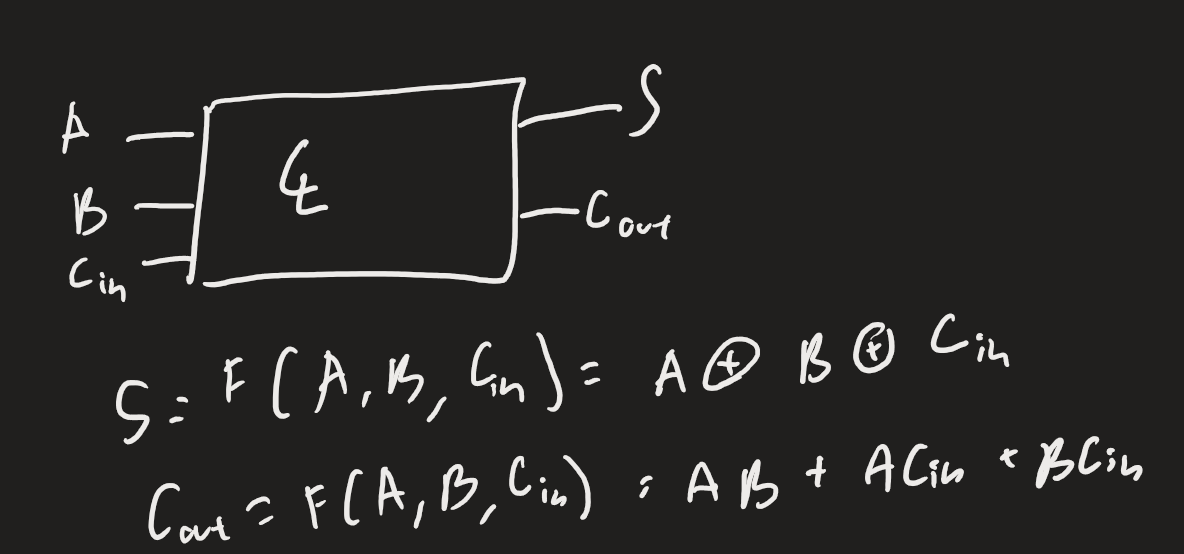 A
B
Cin
CL
S
Cout
S = F(A, B, Cin) = A ⊕ B ⊕ Cin
Cout = F(A, B, Cin) = AB + ACin + BCin